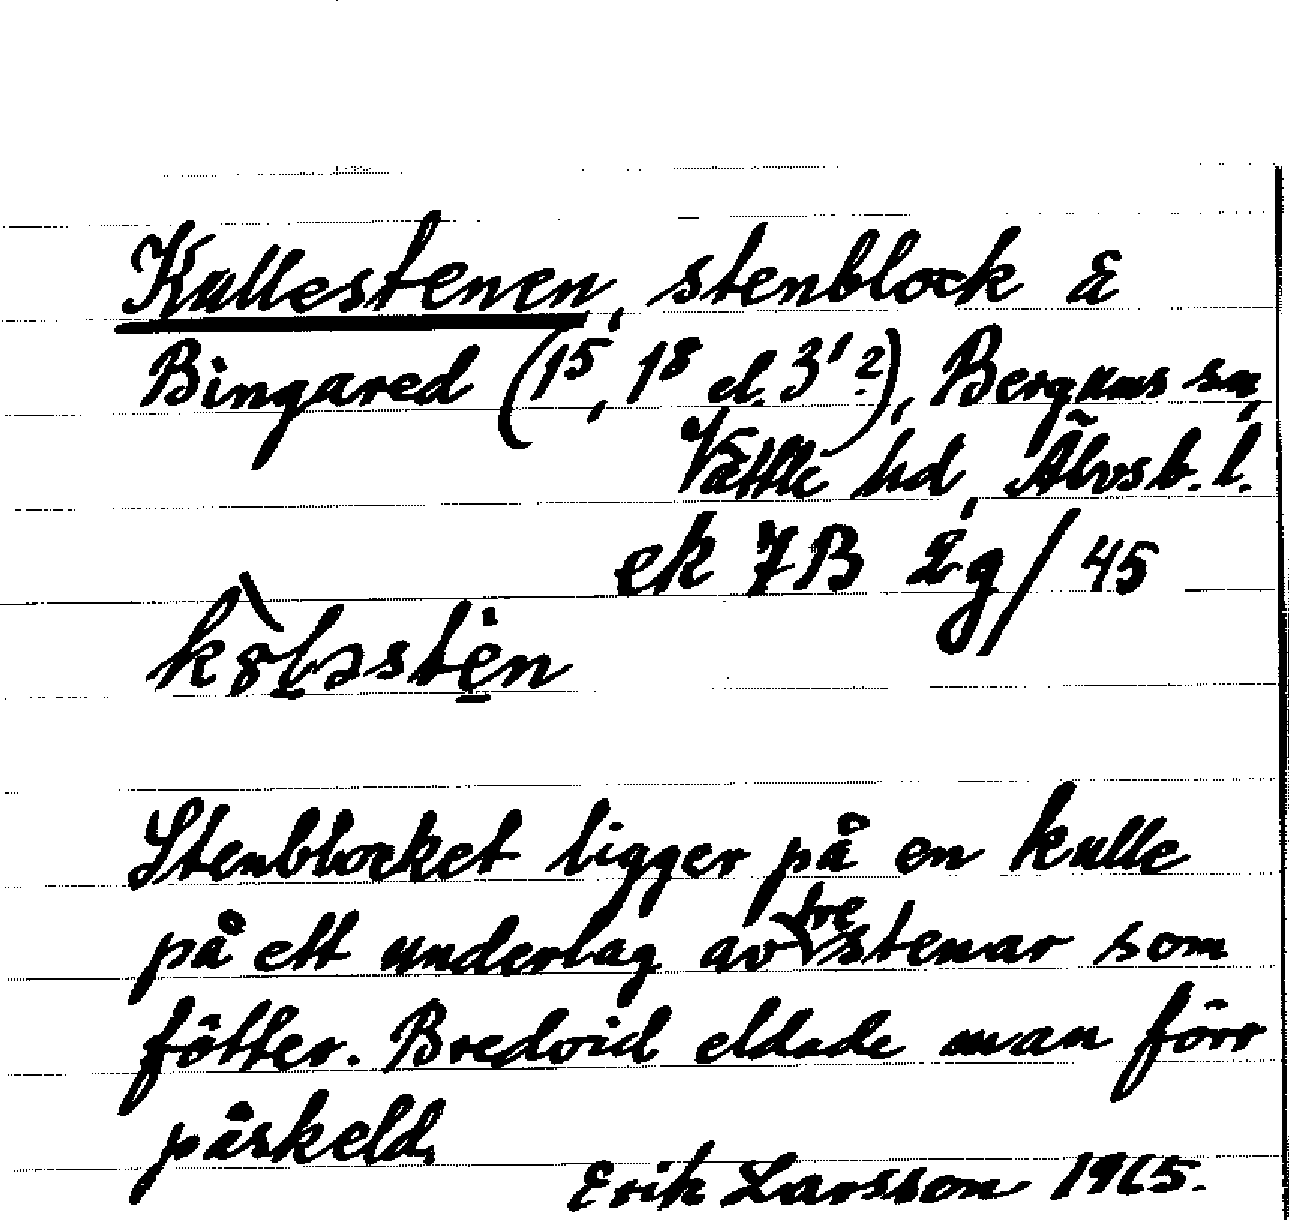 Kullestenen, stenblock Å
Bingared (1⁵, 1⁸ el. 3¹ ²), Bergums sn,
Vättle hd, Älvsb. l.
ek 7B 2g/45
Stenblocket ligger på en kulle
på ett underlag av tre stenar som
fötter. Bredvid eldade man förr
påskeld.
Erik Larsson 1965.